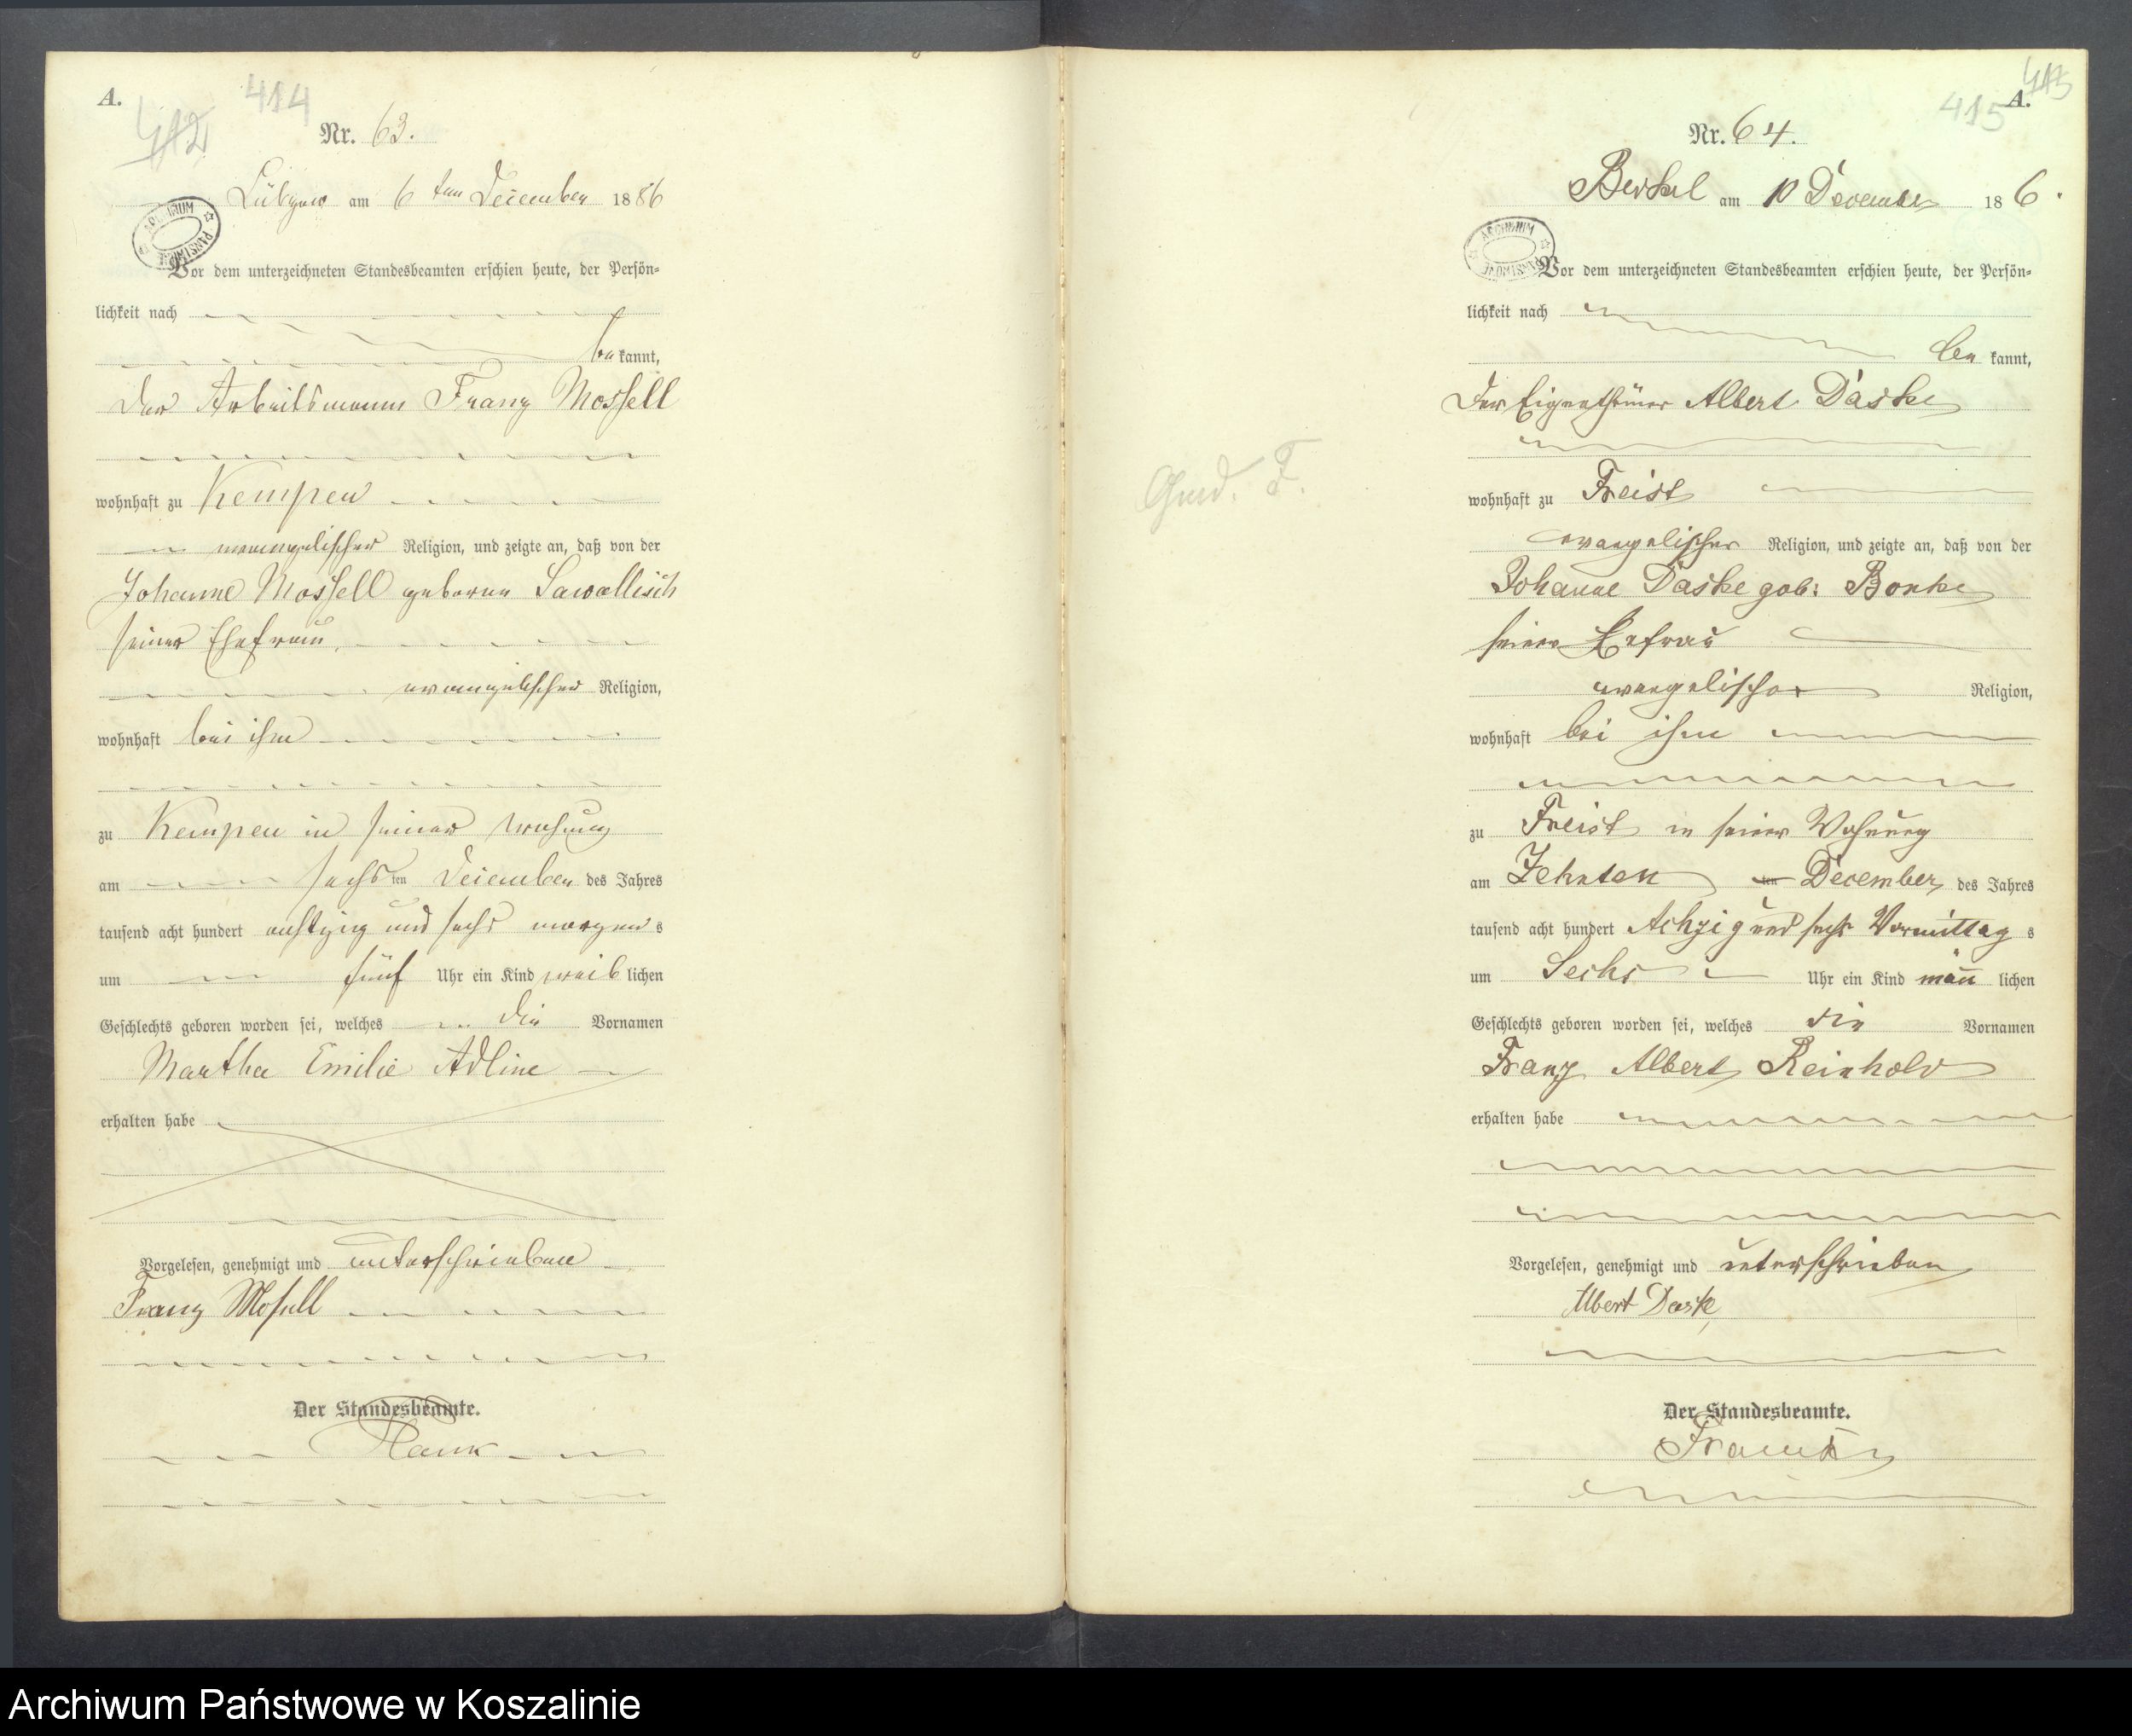 A.
414
412
Nr. 63.
Lübzow am 6 ten December 1886
ARCHIWUM PAŃSTWOWE
Vor dem unterzeichneten Standesbeamten erschien heute, der Persön=
lichkeit nach
be kannt,
der Arbeitsmann Franz Mossell
wohnhaft zu Kempen
evangelischer Religion, und zeigte an, daß von der
Johanne Mossell geborne Sawallisch
seiner Ehefrau,
evangelischer Religion,
wohnhaft bei ihm
zu Kempen in seiner Wohnung
am sechs ten December des Jahres
tausend acht hundert achtzig und sechs morgen s
um fünf Uhr ein Kind weib lichen
Geschlechts geboren worden sei, welches die Vornamen
Martha Emilie Adline
erhalten habe
Vorgelesen, genehmigt und unterschrieben
Franz Mosell
Der Standesbeamte.
415
A.
Nr. 64.
am 10 December 18 6.
ARCHIWUM PAŃSTWOWE
Vor dem unterzeichneten Standesbeamten erschien heute, der Persön=
lichkeit nach
be kannt,
Der Eigenthümer Albert Daske
Gmd. F.
wohnhaft zu Freist
evangelischer Religion, und zeigte an, daß von der
Johanne Daske geb: Bonke
seiner Ehefrau
evangelischer Religion,
wohnhaft bei ihm
zu Freist in seiner Wohnung
am Zehnten ten December des Jahres
tausend acht hundert Achzig und sechs Vormittag s
um Sechs Uhr ein Kind männ lichen
Geschlechts geboren worden sei, welches die Vornamen
Franz Albert Reinhold
erhalten habe
Vorgelesen, genehmigt und unterschrieben
Albert Daske
Der Standesbeamte.
Archiwum Państwowe w Koszalinie